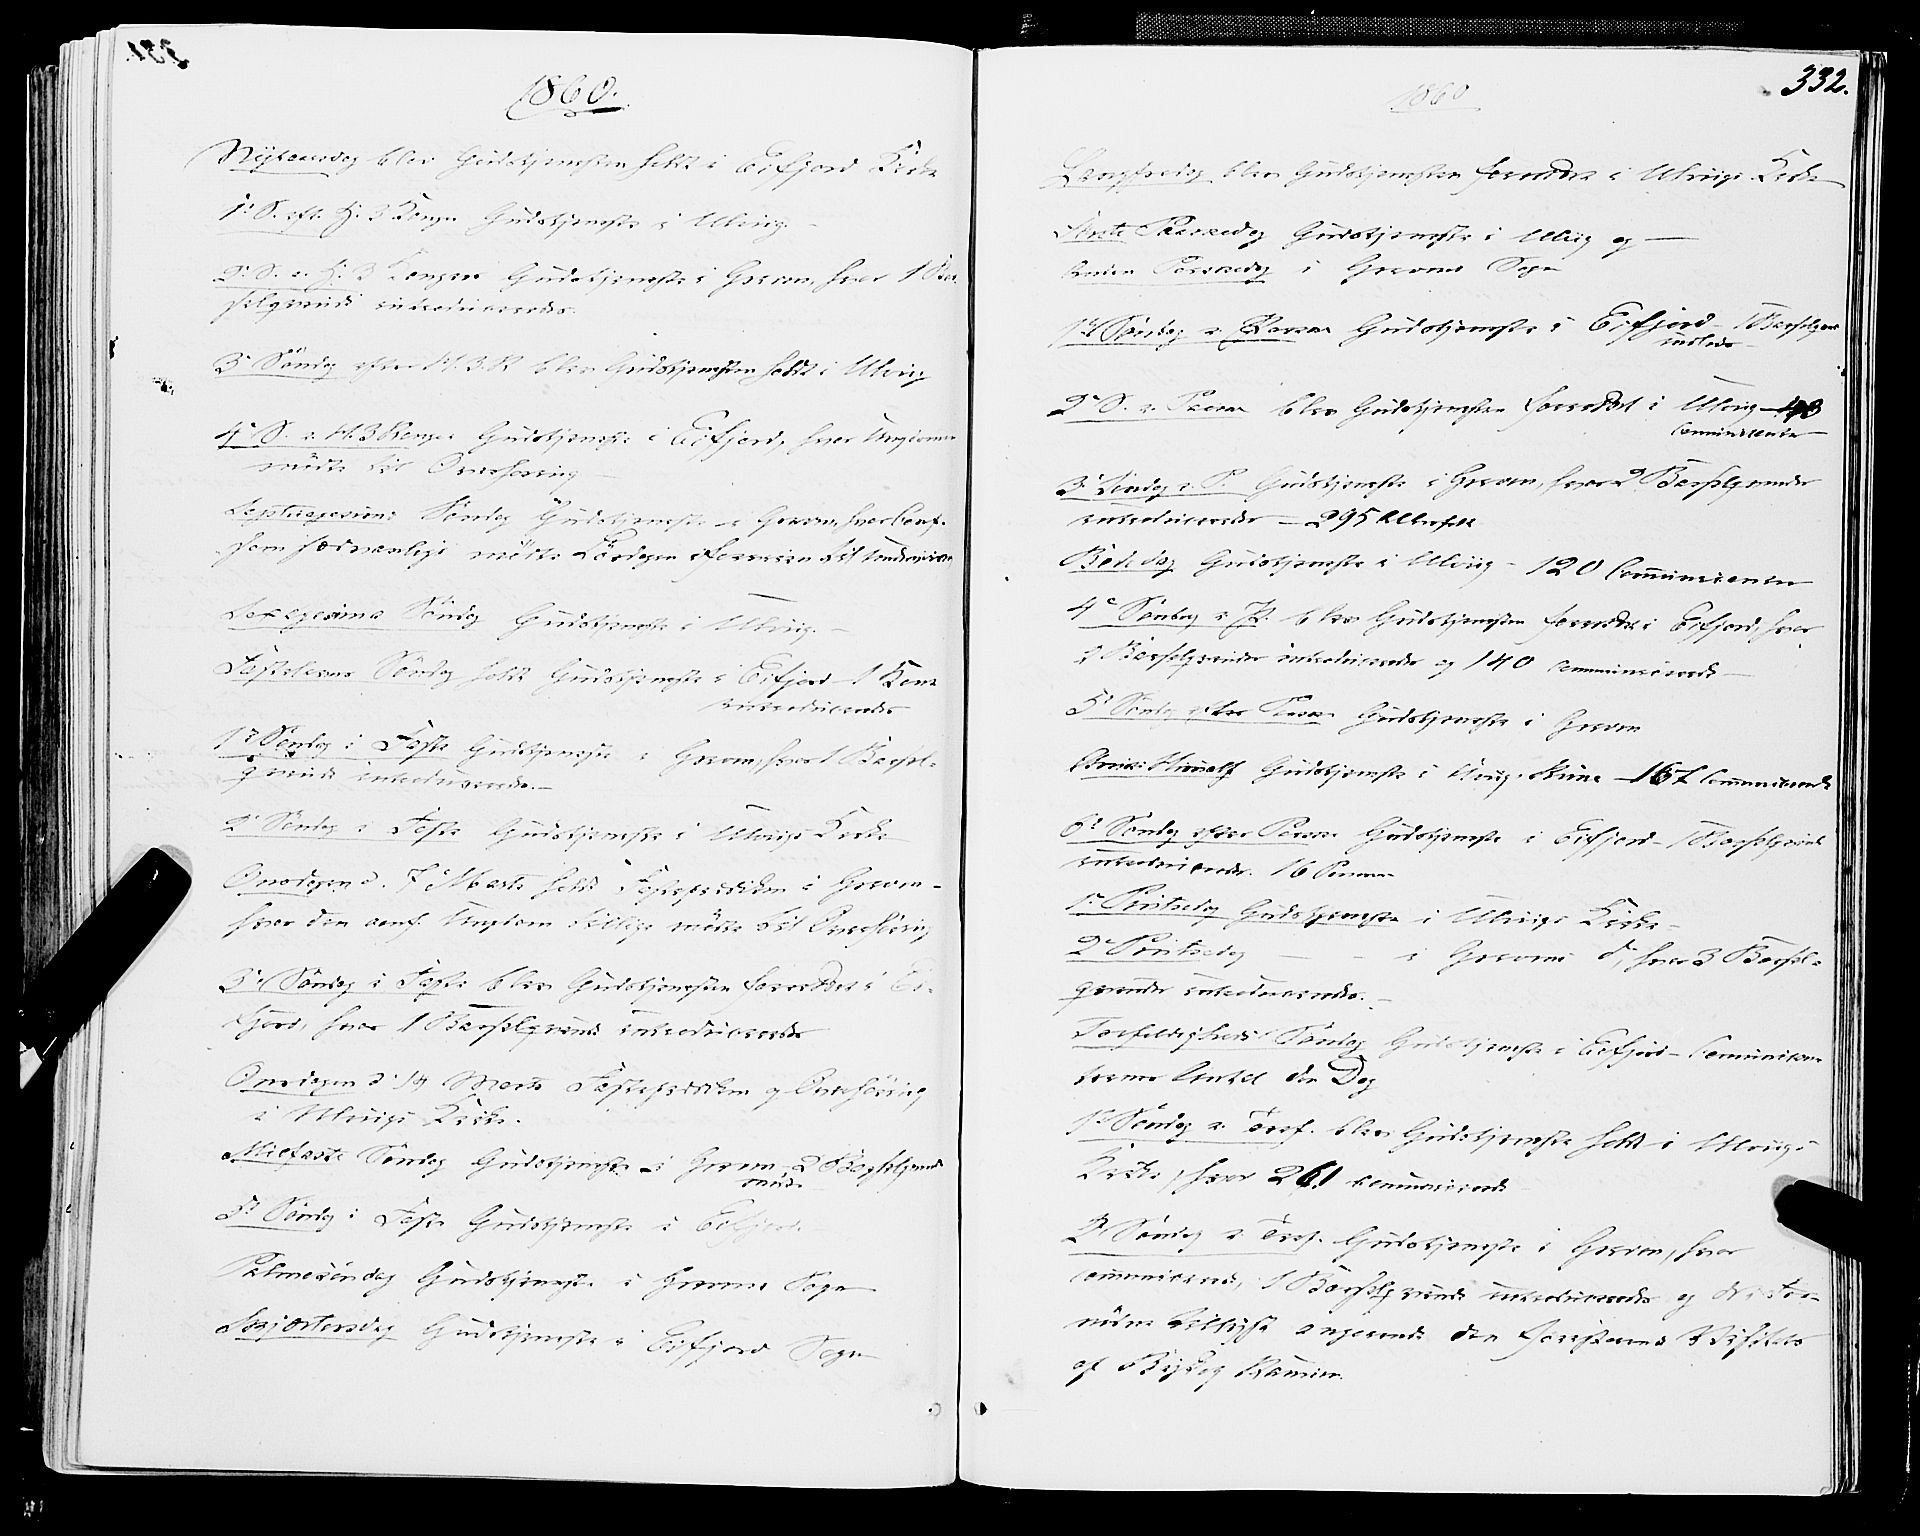 1860.
Nytaarsdag blev Gudstjenesten holdt i Eifjord Kirke
1ste S. eft. H. 3 Konger Gudstjeneste i Ulvig.
2. S. e. H. 3 Konger Gudstjeneste i Graven, hvor 1 Bar-
selqvinde introduceredes.
3die Söndag efter H. 3. K. blev Gudstjenesten holdt i Ulvig
4de S. e. H. 3 Konger Gudstjeneste i Eifjord, hvor Ungdommen
mödte til Overhöring
Septuagesima Söndag Gudstjeneste i Graven, hvor Conf.
som sædvanligt mödte Lördagen iforveien til
Sexagesima Söndag Gudstjeneste i Ulvig.
Fastelavns Söndag holdt Gudstjeneste i Eifjord 1 Kone
introduceredes
1ste Söndag i Faste Gudstjeneste i Graven, hvor 1 Barsel-
qvinde introduceredes.
2. Söndag i Faste Gudstjeneste i Ulvigs Kirke
Onsdagen d. 7 Marts holdt Fasteprædiken i Graven
hvor den conf. Ungdom tillige mödte til Overhöring
3die Söndag i Faste blev Gudstjenesten forrettet i Ei-
fjord, hvor 1 Barselqvinde introduceredes
Onsdagen d. 14 Marts Fasteprædiken og Overhöring
i Ulvigs Kirke.
Midfaste Söndag Gudstjeneste i Graven 2 Barselqvinder
5te Söndag i Faste Gudstjeneste i Eifjord
Palmesöndag Gudstjeneste i Gravens Sogn
Skjærtorsdag Gudstjeneste i Eifjord Sogn
332.
1860
Langfredag blev Gudstjenesten forrettet i Ulvigs Kirke
Förste Paaskedag Gudstjeneste i Ulvig og
Anden Paaskedag i Gravens Sogn
1ste Söndag e. Paaske Gudstjeneste i Eifjord 1 Barselqvinde
indledt
2den S. e. Paaske blev Gudstjenesten forrettet i Ulvig
Communicanter
3die Söndag e. P. Gudstjeneste i Graven, hvor 2 Barselqvinder
introduceredes 295 Altergjæster
Bededag Gudstjeneste i Ulvig 120 Communicanter
4de Söndag e. P. blev Gudstjenesten forrettet i Eifjord, hvor
2 Barselqvinder introduceredes og 140 communicerede
5te Söndag efter Paaske Gudstjeneste i Graven
Christi Himmelf. Gudstjeneste i Ulvigs Kirke 167 Communicerede
6te Söndag efter Paaske Gudstjeneste i Eifjord 1 Barselqvinde
introduceredes.
1ste Pintsedag Gudstjeneste i Ulvigs Kirke
2den Pintsedag — — i Gravens do, hvor 3 Barsel-
qvinder introduceredes.
Trefoldigheds Söndag Gudstjeneste i Eifjord
den Dag
1ste Söndag e. Tref. blev Gudstjeneste holdt i Ulvigs
Kirke, hvor 261 communicerede
2den Söndag e. Tref. Gudstjeneste i Graven, hvor
communicerede, 1 Barselqvinde introduceredes og
angaaende den forestaaende Visitats
af